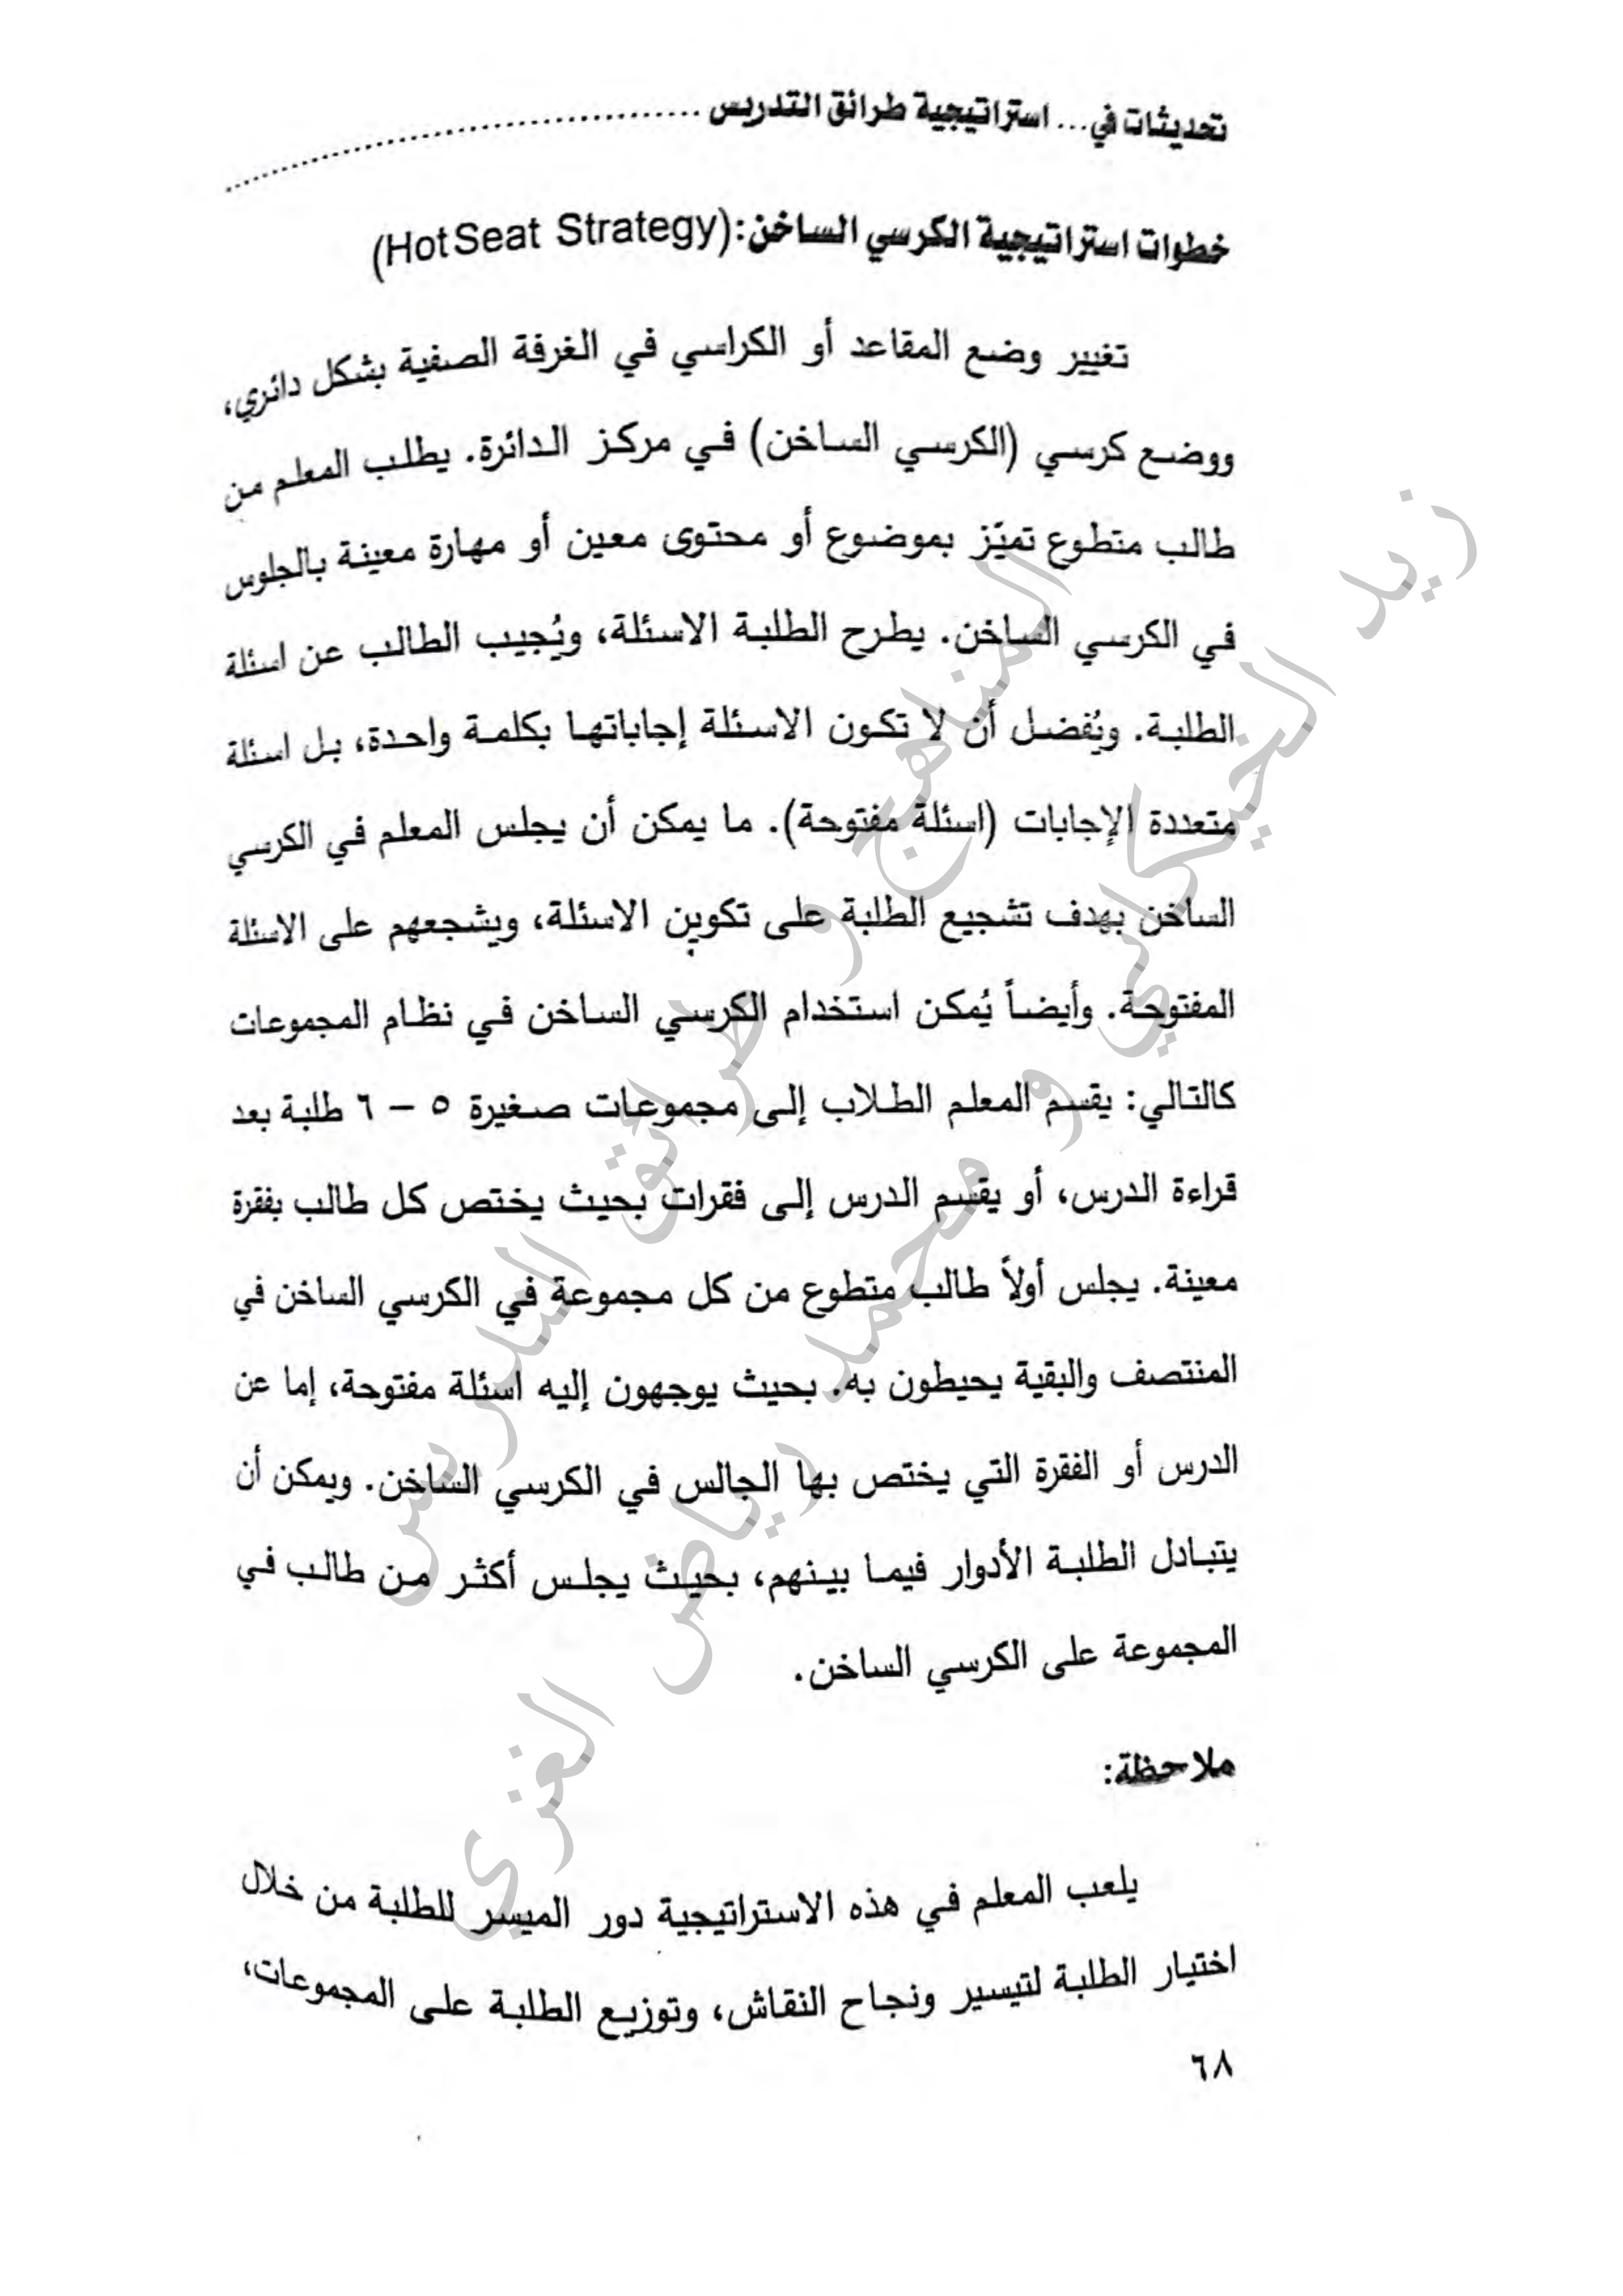 تحديثات في... استراتيجية طرائق التدريس
خطوات استراتيجية الكرسي الساخن:(Hot Seat Strategy)
تغيير وضع المقاعد أو الكراسي في الغرفة الصفية بشكل دائري،
ووضع كرسي (الكرسي الساخن) في مركز الدائرة. يطلب المعلم من
طالب متطوع تميّز بموضوع أو محتوى معين أو مهارة معينة بالجلوس
في الكرسي الساخن. يطرح الطلبة الاسئلة، ويُجيب الطالب عن اسئلة
الطلبة. ويُفضل أن لا تكون الاسئلة إجاباتها بكلمة واحدة، بل اسئلة
متعددة الإجابات (اسئلة مفتوحة). ما يمكن أن يجلس المعلم في الكرسي
الساخن بهدف تشجيع الطلبة على تكوين الاسئلة، ويشجعهم على الاسئلة
المفتوحة. وأيضاً يُمكن استخدام الكرسي الساخن في نظام المجموعات
كالتالي: يقسم المعلم الطلاب إلى مجموعات صغيرة ٥ – ٦ طلبة بعد
قراءة الدرس، أو يقسم الدرس إلى فقرات بحيث يختص كل طالب بفقرة
معينة. يجلس أولاً طالب متطوع من كل مجموعة في الكرسي الساخن في
المنتصف والبقية يحيطون به. بحيث يوجهون إليه اسئلة مفتوحة، إما عن
الدرس أو الفقرة التي يختص بها الجالس في الكرسي الساخن. ويمكن أن
يتبادل الطلبة الأدوار فيما بينهم، بحيث يجلس أكثر من طالب في
المجموعة على الكرسي الساخن.
ملاحظة:
يلعب المعلم في هذه الاستراتيجية دور الميسر للطلبة من خلال
اختيار الطلبة لتيسير ونجاح النقاش، وتوزيع الطلبة على المجموعات،
٦٨
المناهج و طرائق التدريس
زيد الخيكاني و محمد رياض الغزي